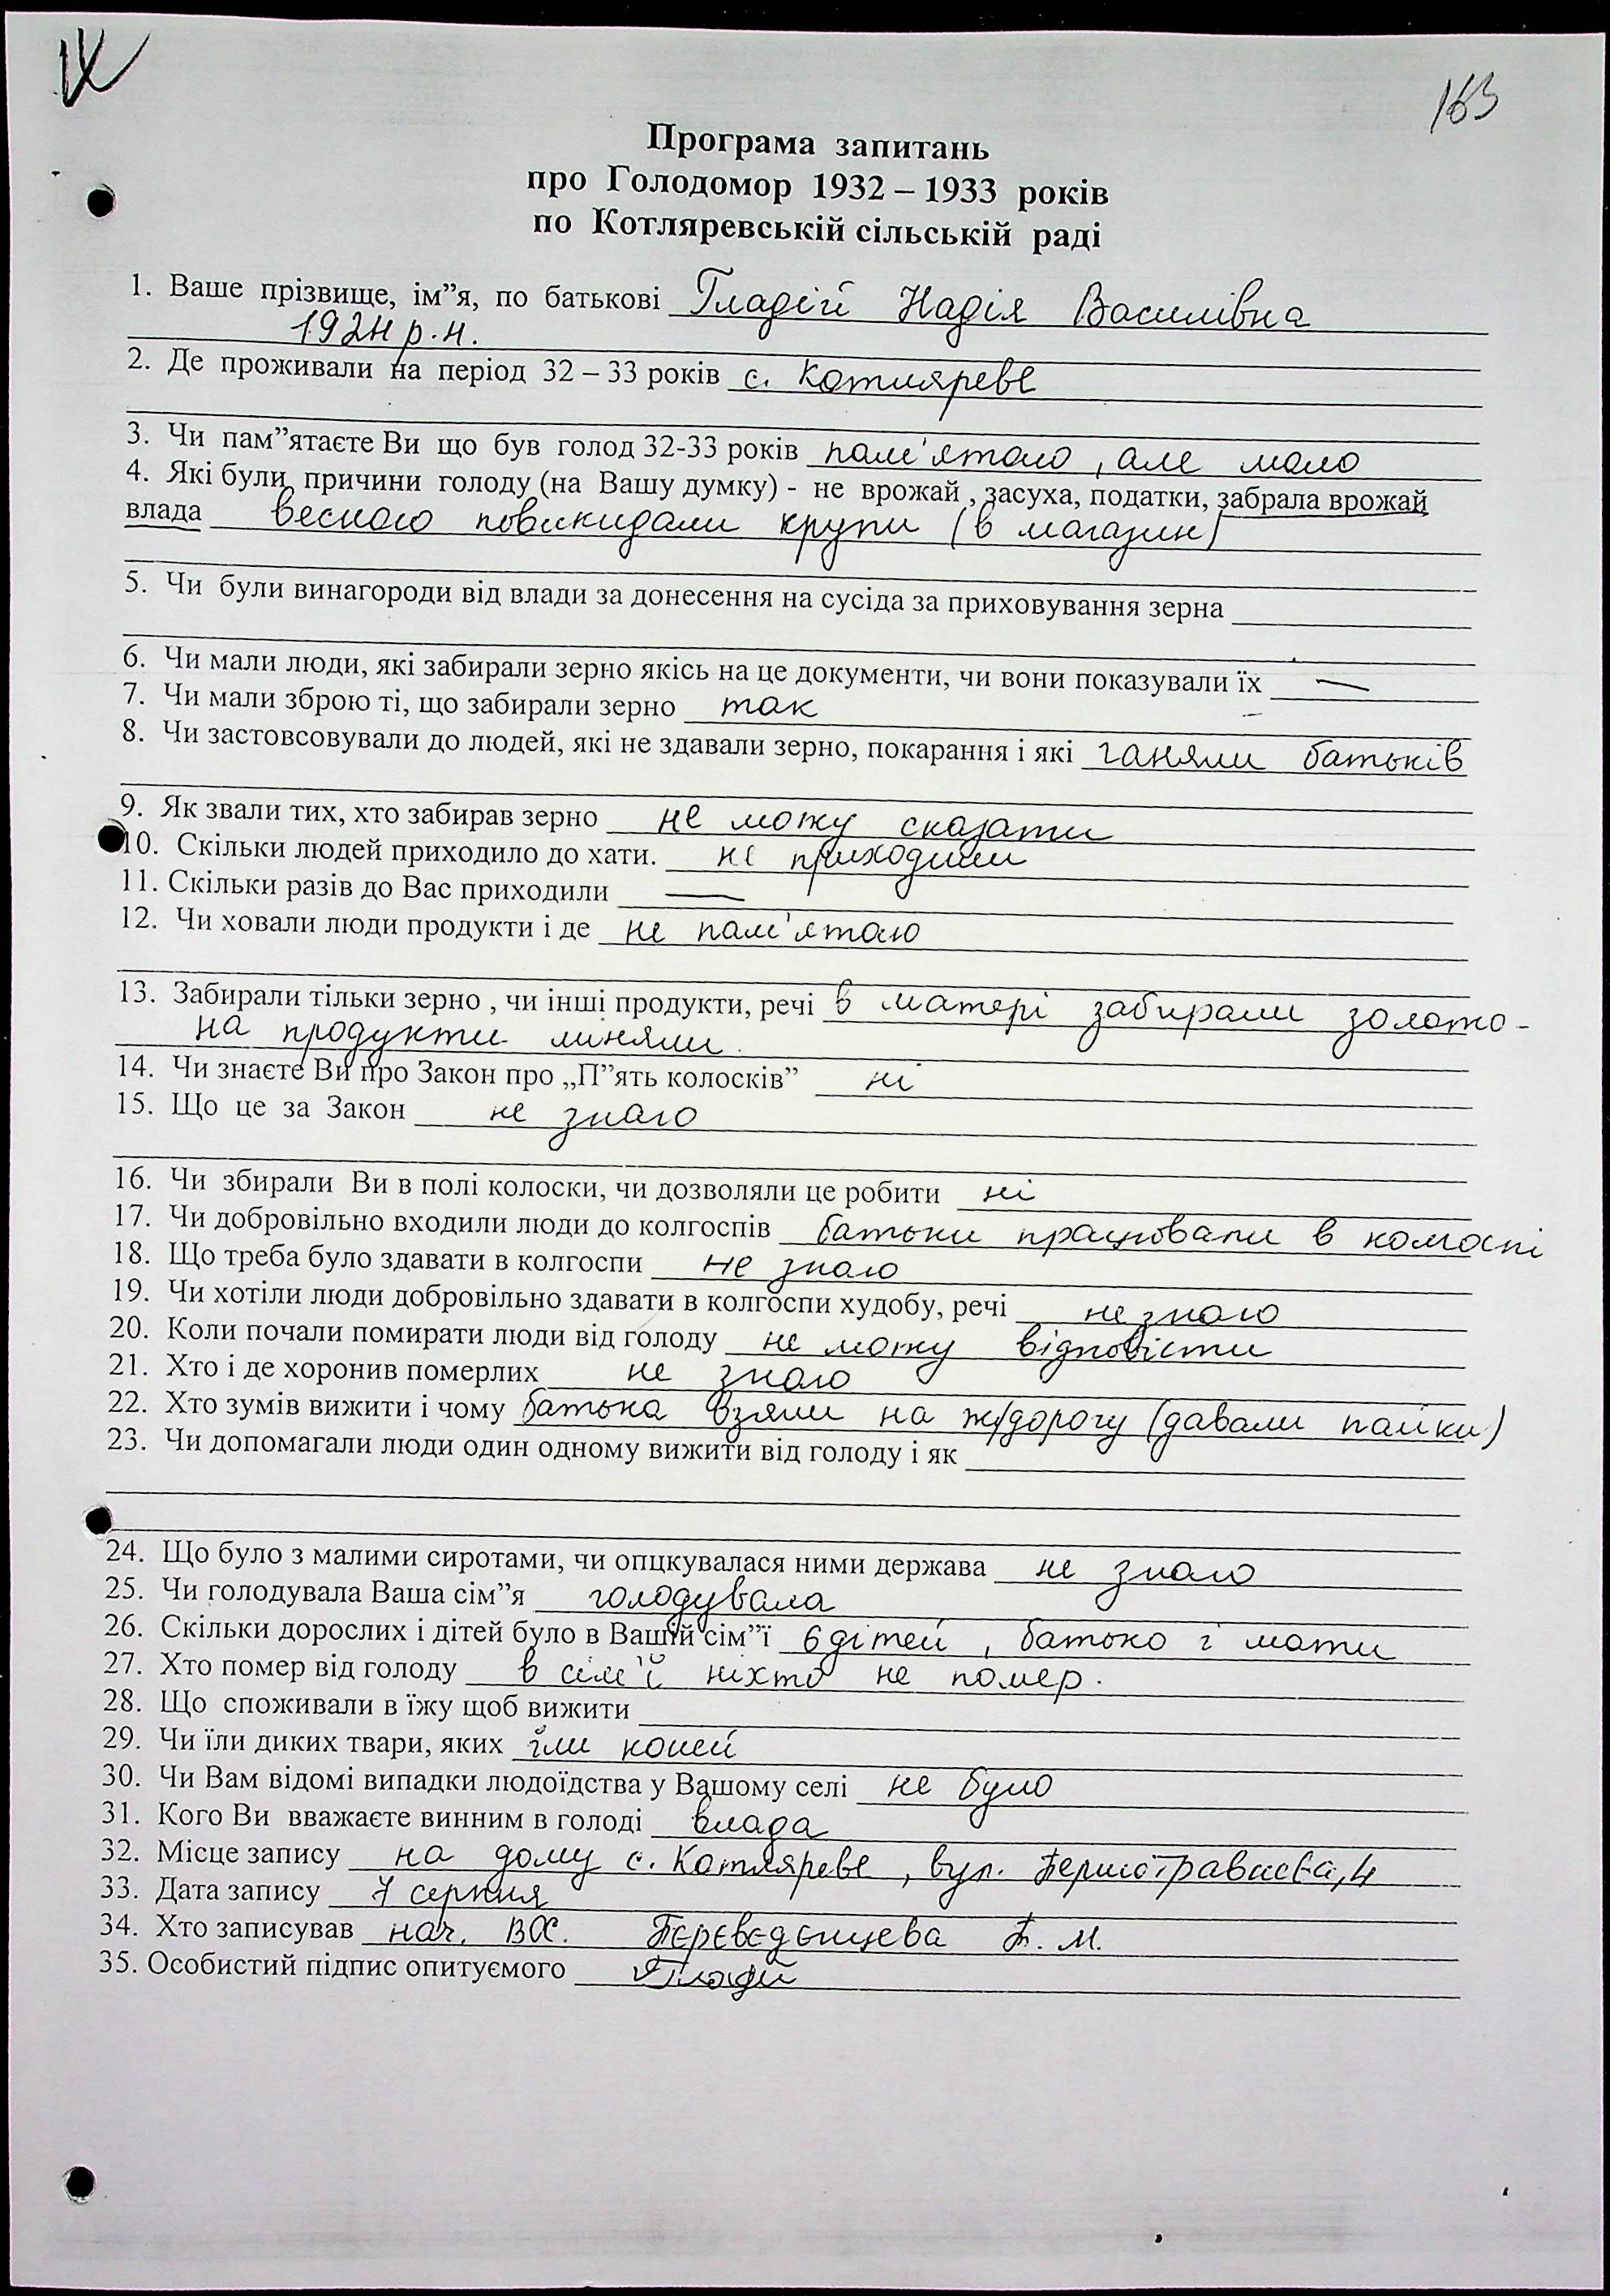 IX
163
Програма запитань
про Голодомор 1932 – 1933 років
по Котляревській сільській раді
1. Ваше прізвище, ім”я, по батькові Гладій Надія Василівна
1924 р.н.
2. Де проживали на період 32 – 33 років с. Котляреве
3. Чи пам”ятаєте Ви що був голод 32-33 років пам'ятаю, але мало
4. Які були причини голоду (на Вашу думку) - не врожай , засуха, податки, забрала врожай
влада весною повикидали крупи (в магазин)
5. Чи були винагороди від влади за донесення на сусіда за приховування зерна
6. Чи мали люди, які забирали зерно якісь на це документи, чи вони показували їх —
7. Чи мали зброю ті, що забирали зерно так
8. Чи застовсовували до людей, які не здавали зерно, покарання і які ганяли батьків
9. Як звали тих, хто забирав зерно не можу сказати
10. Скільки людей приходило до хати. не приходили
11. Скільки разів до Вас приходили —
12. Чи ховали люди продукти і де не пам'ятаю
13. Забирали тільки зерно , чи інші продукти, речі в матері забирали золото -
на продукти миняли.
14. Чи знаєте Ви про Закон про „П”ять колосків” ні
15. Що це за Закон не знаю
16. Чи збирали Ви в полі колоски, чи дозволяли це робити ні
17. Чи добровільно входили люди до колгоспів батьки працювали в колгоспі
18. Що треба було здавати в колгоспи не знаю
19. Чи хотіли люди добровільно здавати в колгоспи худобу, речі не знаю
20. Коли почали помирати люди від голоду не можу відповісти
21. Хто і де хоронив померлих не знаю
22. Хто зумів вижити і чому батька взяли на ж/дорогу (давали пайки)
23. Чи допомагали люди один одному вижити від голоду і як
24. Що було з малими сиротами, чи опцкувалася ними держава не знаю
25. Чи голодувала Ваша сім”я голодувала
26. Скільки дорослих і дітей було в Вашій сім”ї 6 дітей , батько і мати
27. Хто помер від голоду в сім'ї ніхто не помер.
28. Що споживали в їжу щоб вижити
29. Чи їли диких твари, яких їли коней
30. Чи Вам відомі випадки людоїдства у Вашому селі не було
31. Кого Ви вважаєте винним в голоді влада
32. Місце запису на дому с. Котляреве , вул. Першотравнева, 4
33. Дата запису 7 серпня
34. Хто записував нач. Переведенцева М.
35. Особистий підпис опитуємого Гладій